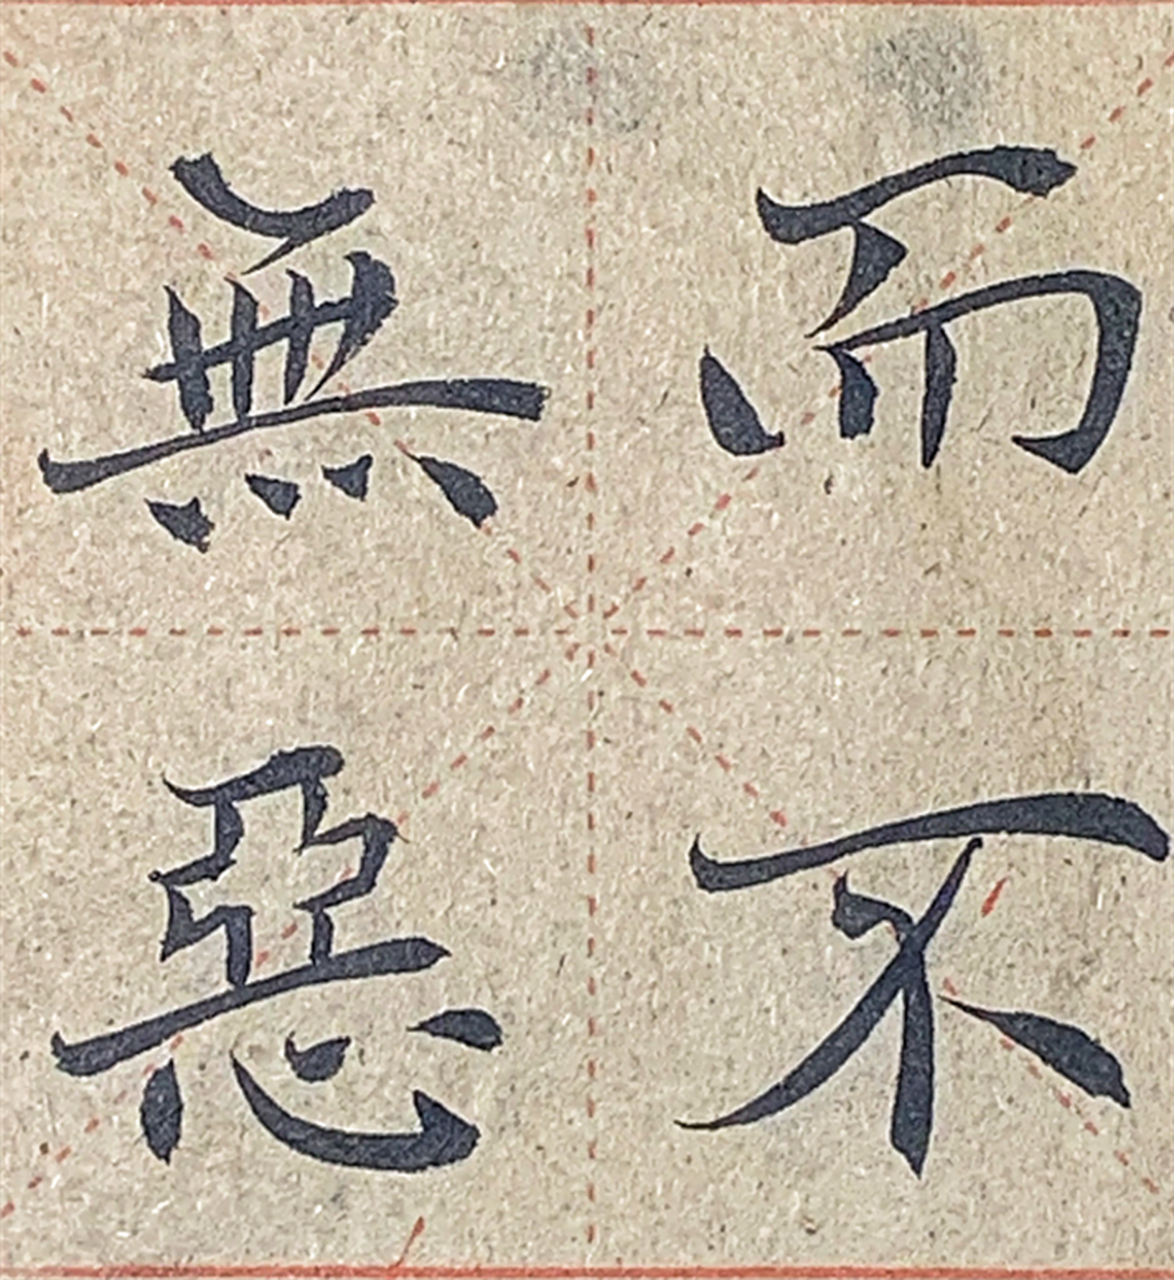 而不
無惡